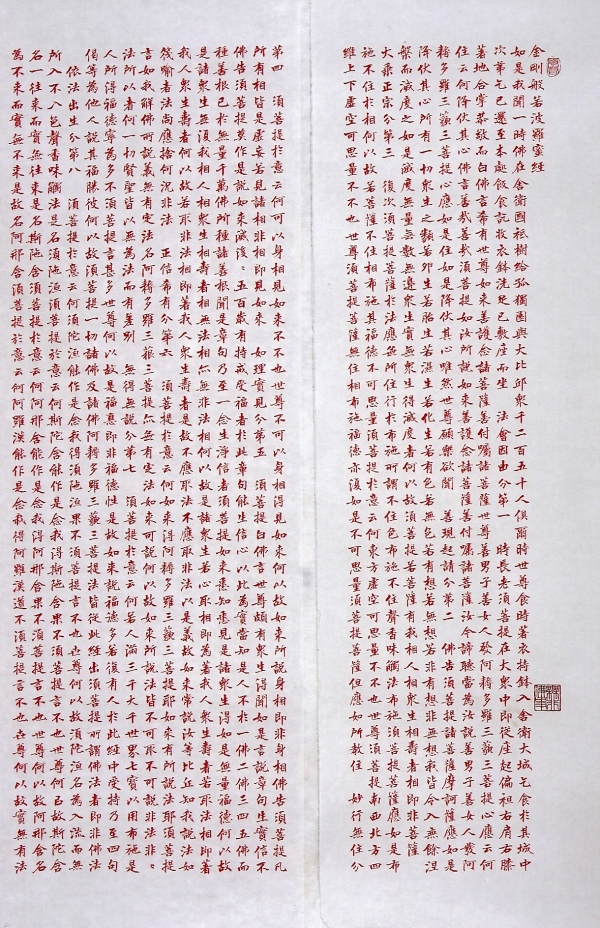 金剛般若波羅蜜經
如是我聞一時佛在舍衛國祇樹給孤獨園與大比邱眾千二百五十人俱爾時世尊食時著衣持鉢入舍衛大城乞食於其城中
次第乞已還至本處飯食訖收衣鉢洗足已敷座而坐 法會因由分第一 時長老須菩提在大眾中即從座起偏袒右肩右膝
著地合掌恭敬而白佛言希有世尊如來善護念諸菩薩善付囑諸菩薩世尊善男子善女人發阿耨多羅三藐三菩提心應云何
住云何降伏其心佛言善哉善哉須菩提如汝所說如來善護念諸菩薩善付囑諸菩薩汝今諦聽當為汝說善男子善女人發阿
耨多羅三藐三菩提心應如是住如是降伏其心唯然世尊願樂欲聞 善現起請分第二 佛告須菩提諸菩薩摩訶薩應如是
降伏其心所有一切眾生之類若卵生若胎生若濕生若化生若有色若無色若有想若無想若非有想非無想我皆令入無餘涅
槃而滅度之如是滅度無量無數無邊眾生實無眾生得滅度者何以故須菩提若菩薩有我相人相眾生相壽者相即非菩薩
大乘正宗分第三 復次須菩提菩薩於法應無所住行於布施所謂不住色布施不住聲香味觸法布施須菩提菩薩應如是布
施不住於相何以故若菩薩不住相布施其福德不可思量須菩提於意云何東方虛空可思量不不也世尊須菩提南西北方四
維上下虛空可思量不不也世尊須菩提菩薩無住相布施福德亦復如是不可思量須菩提菩薩但應如所教住 妙行無住分
第四 須菩提於意云何可以身相見如來不不也世尊不可以身相得見如來何以故如來所說身相即非身相佛告須菩提凡
所有相皆是虛妄若見諸相非相即見如來 如理實見分第五 須菩提白佛言世尊頗有眾生得聞如是言說章句生實信不
佛告須菩提莫作是說如來滅後後五百歲有持戒修福者於此章句能生信心以此為實當知是人不於一佛二佛三四五佛而
種善根已於無量千萬佛所種諸善根聞是章句乃至一念生淨信者須菩提如來悉知悉見是諸眾生得如是無量福德何以故
是諸眾生無復我相人相眾生相壽者相無法相亦無非法相何以故是諸眾生若心取相即為著我人眾生壽者若取法相即著
我人眾生壽者何以故若取非法相即著我人眾生壽者是故不應取法不應取非法以是義故如來常說汝等比丘知我說法如
筏喻者法尚應捨何況非法 正信希有分第六 須菩提於意云何如來得阿耨多羅三藐三菩提耶如來有所說法耶須菩提
言如我解佛所說義無有定法名阿耨多羅三藐三菩提亦無有定法如來可說何以故如來所說法皆不可取不可說非法非非
法所以者何一切賢聖皆以無為法而有差別 無得無說分第七 須菩提於意云何若人滿三千大千世界七寶以用布施是
人所得福德寧為多不須菩提言甚多世尊何以故是福德即非福德性是故如來說福德多若復有人於此經中受持乃至四句
偈等為他人說其福勝彼何以故須菩提一切諸佛及諸佛阿耨多羅三藐三菩提法皆從此經出須菩提所謂佛法者即非佛法
依法出生分第八 須菩提於意云何須陀洹能作是念我得須陀洹果不須菩提言不也世尊何以故須陀洹名為入流而無
所入不入色聲香味觸法是名須陀洹須菩提於意云何斯陀含能作是念我得斯陀含果不須菩提言不也世尊何以故斯陀含
名一往來而實無往來是名斯陀含須菩提於意云何阿那含能作是念我得阿那含果不須菩提言不也世尊何以故阿那含名
為不來而實無不來是故名阿那含須菩提於意云何阿羅漢能作是念我得阿羅漢道不須菩提言不也世尊何以故實無有法